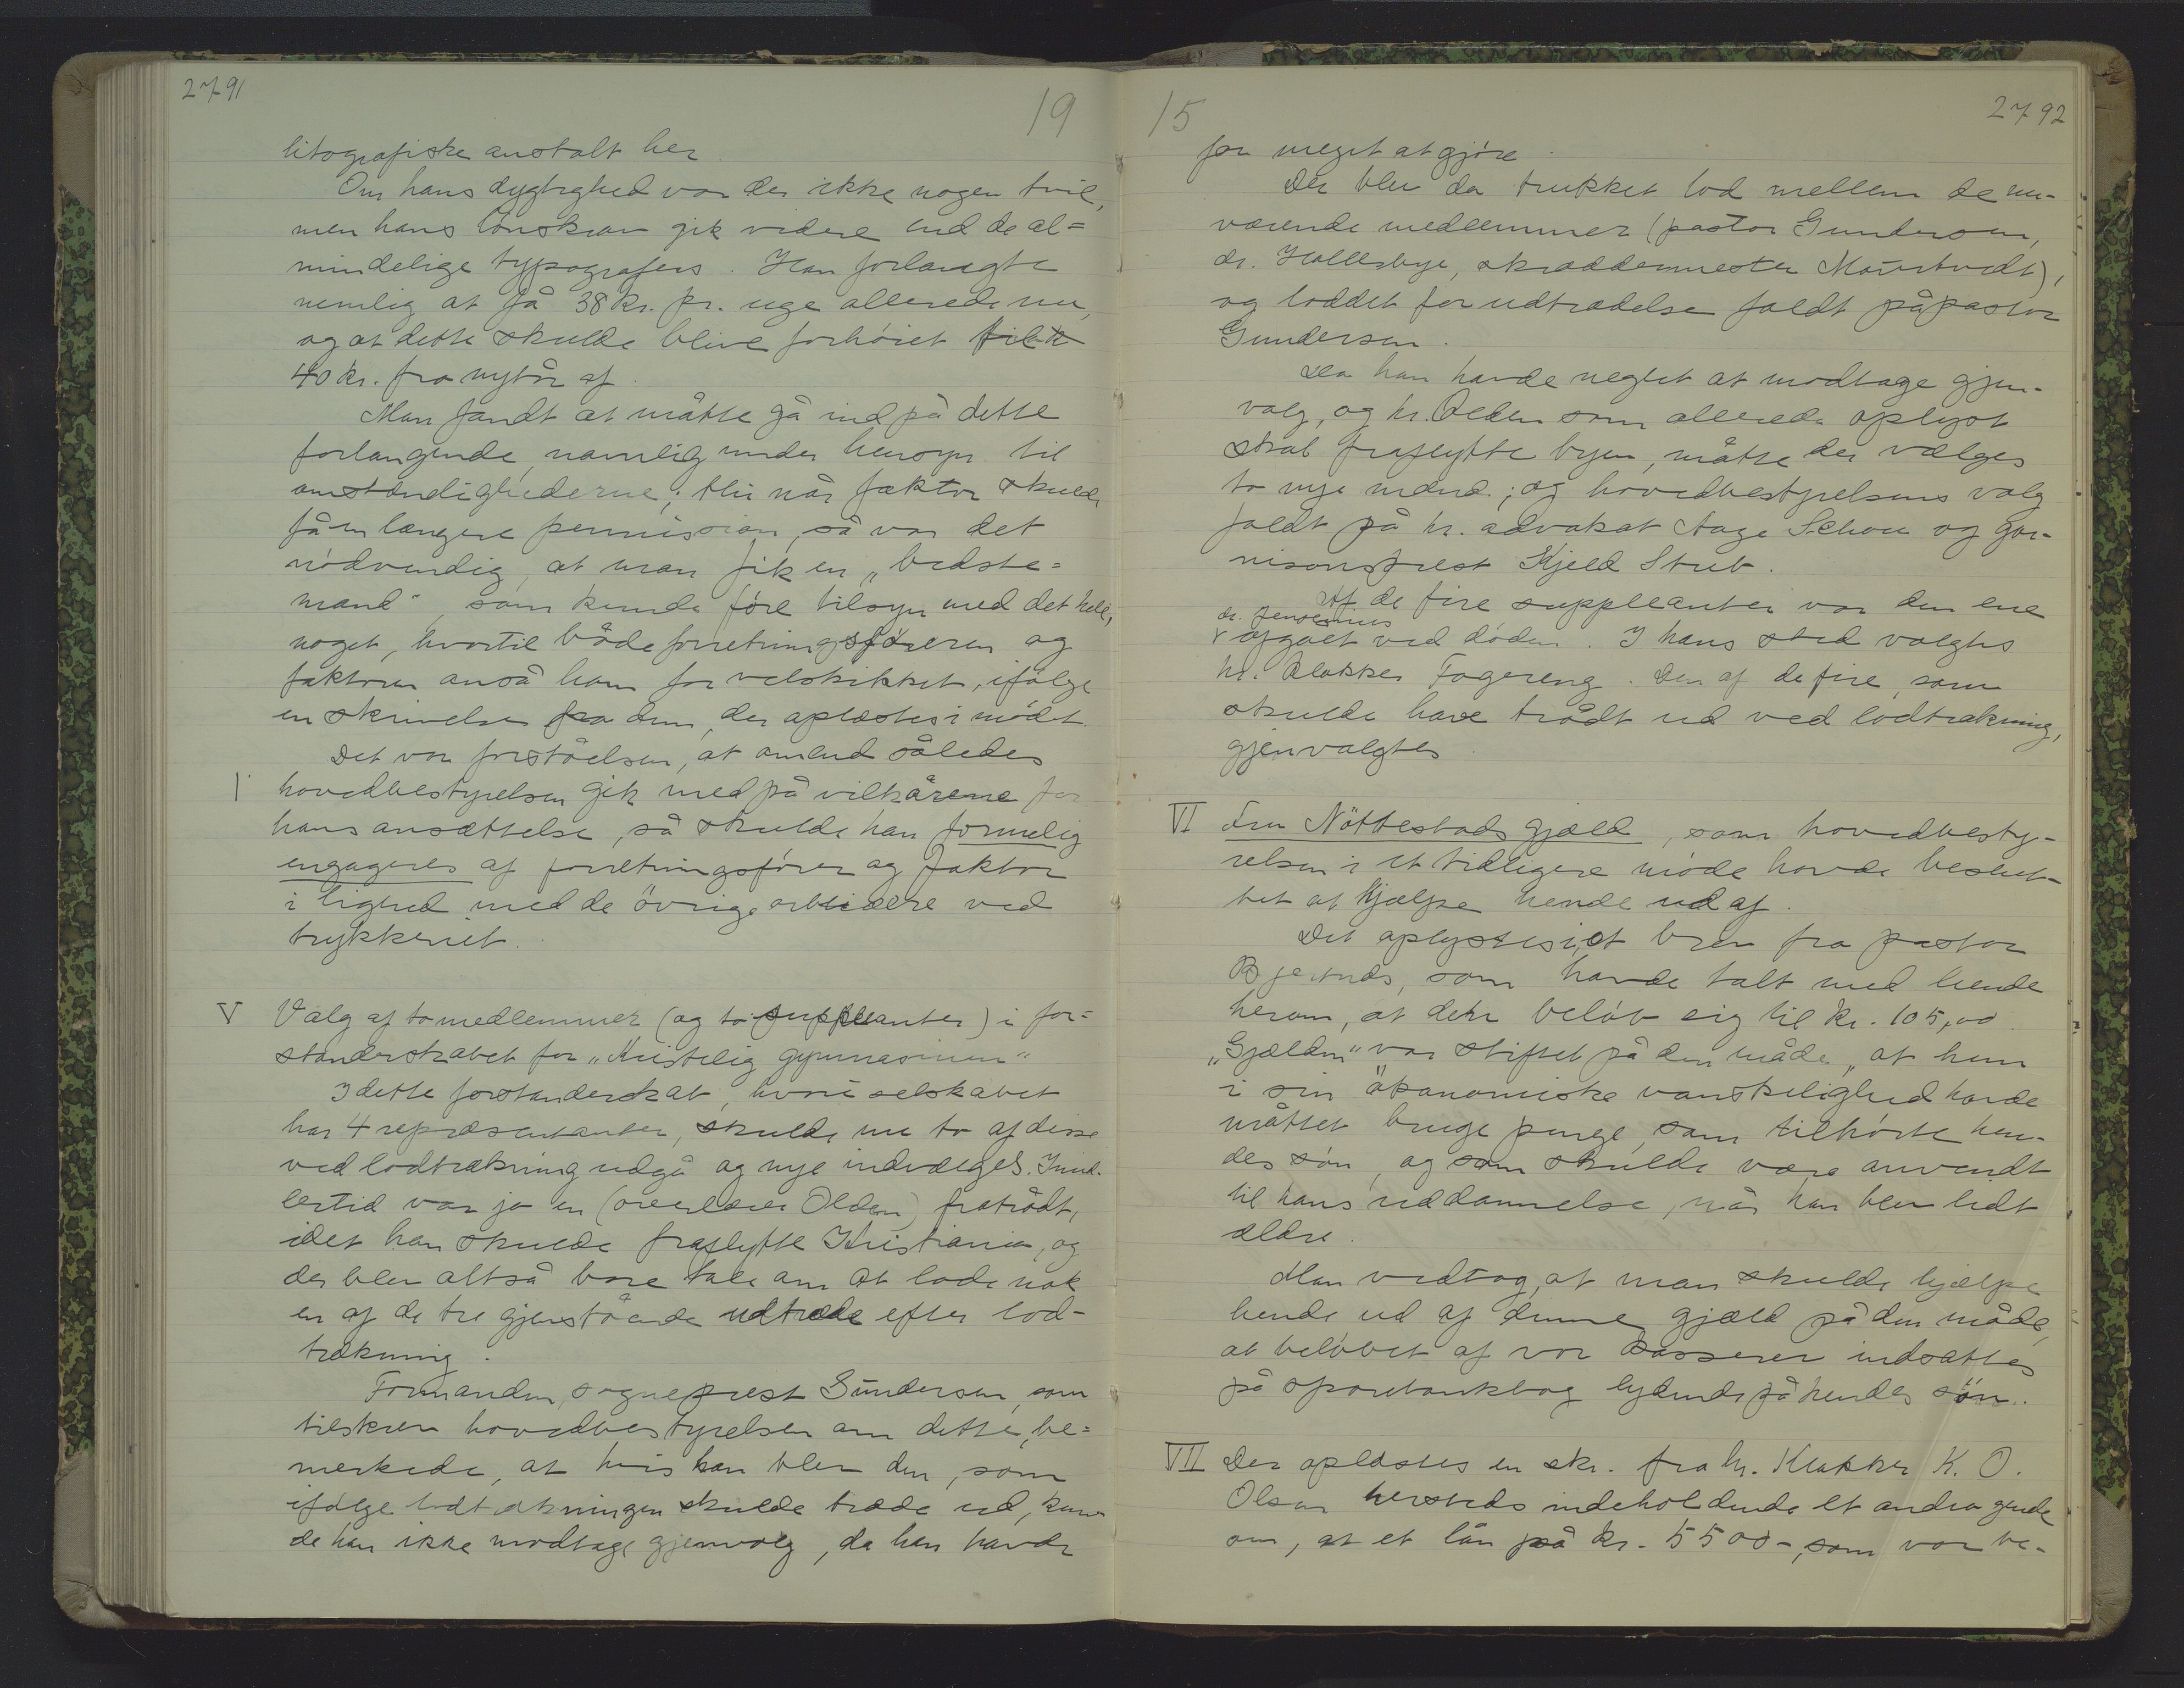 2791
19
litografiske anstalt her.
Om hans dygtighed var der ikke nogen tvil,
men hans lønskrav gik videre end de al=
mindelige typografers. Han forlangte
nemlig at få 38 kr. pr. uge allerede nu,
og at dette skulde blive forhöiet til
40 kr. fra nytår af.
Man fandt at måtte gå ind på dette
forlangende, navnlig under hensyn til
omstændighederne; thi når faktor skulde
få en længere permission, så var det
nödvendig, at man fik en „bedste=
mand", som kunde före tilsyn med det hele,
noget, hvortil både forretningsföreren og
faktoren anså ham for velskikket, ifölge
en skrivelse fra dem, der oplæstes i mödet.
Det var forståelsen, at omend således
hovedbestyrelsen gik med på vilkårene for
hans ansættelse, så skulde han formelig
engageres af forretningsförer og faktor
i lighed med de övrige arbeidere ved
trykkeriet.
V Valg af to medlemmer (og to suppleanter) i for=
standerskabet for „Kristelig gymnasium"
I dette forstanderskab, hvori selskabet
har 4 repræsentanter, skulde nu to af disse
ved lodtrækning udgå og nye indvælges. Imid-
lertid var jo en (overlærer Olden) fratrådt,
idet han skulde fraflytte Kristiania, og
der blev altså bare tale om at lade nok
en af de tre gjenstående udtræde efter lod-
trækning.
Formanden, sogneprest Gundersen, som
tilskrev hovedbestyrelsen om dette, be=
merkede, at hvis han blev den, som
ifölge lodtrækningen skulde træde ud, kun-
de han ikke modtage gjenvalg, da han havde
15
2792
for meget at gjöre.
Der blev da trukket lod mellem de nu-
værende medlemmer (pastor Gundersen,
dr. Hallesbye, skræddermester Maurtvedt),
og loddet for udtrædelse faldt på pastor
Gundersen.
Da han havde negtet at modtage gjen-
valg, og hr. Olden som allerede oplyst
skal fraflytte byen, måtte der vælges
to nye mænd; og hovedbestyrelsens valg
faldt på hr. advokat Aage Schou og gar-
nisonsprest Kjeld Stub.
Af de fire suppleanter var den ene
dr. Jensenius
afgået ved döden. I hans sted valgtes
hr. klokker Fagereng. Den af de fire, som
skulde have trådt ud ved lodtrækning,
gjenvalgtes
VI Fru Nöttestads gjæld, som hovedbesty-
relsen i et tidligere möde havde beslut-
tet at hjælpe hende ud af.
Det oplystes i et brev fra pastor
Bjertnds, som havde talt med hende
herom, at den belöb sig til kr. 105,00
„Gjælden" var stiftet på den måde, at hun
i sin ökonomiske vanskelighed havde
måttet bruge penge, som tilhörte hen-
des sön, og som skulde være anvendt
til hans uddannelse, når han blev lidt
ældre.
Man vedtog, at man skulde hjælpe
hende ud af denne gjæld på den måde,
at belöbet af vor kasserer indsættes
på sparebankbog lydende på hendes sön.
VII Der oplæstes en skr. fra hr. Klokker K. O.
Olsen hersteds indeholdende et andragende
om, at et lån på kr. 5500-, som var be-